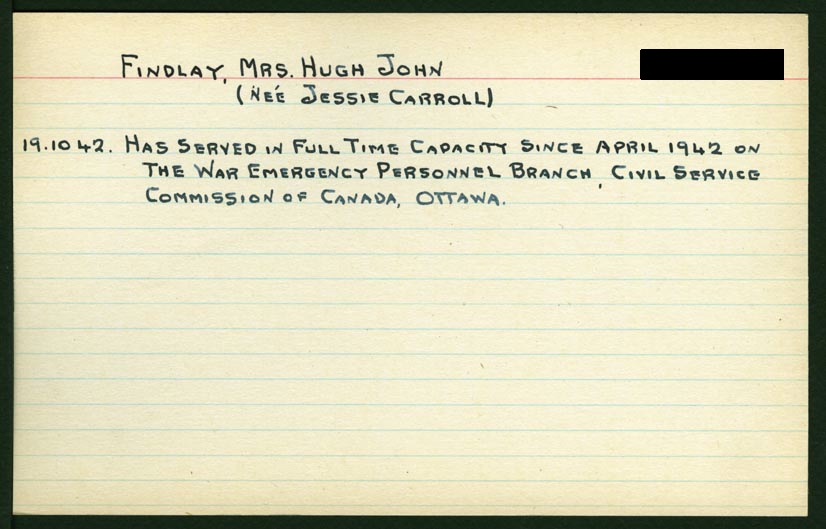 FINDLAY, MRS. HUGH JOHN
(NEÉ JESSIE CARROLL)
19.10 42. HAS SERVED IN FULL TIME CAPACITY SINCE APRIL 1942 ON
THE WAR EMERGENCY PERSONNEL BRANCH, CIVIL SERVICE
COMMISSION OF CANADA, OTTAWA.